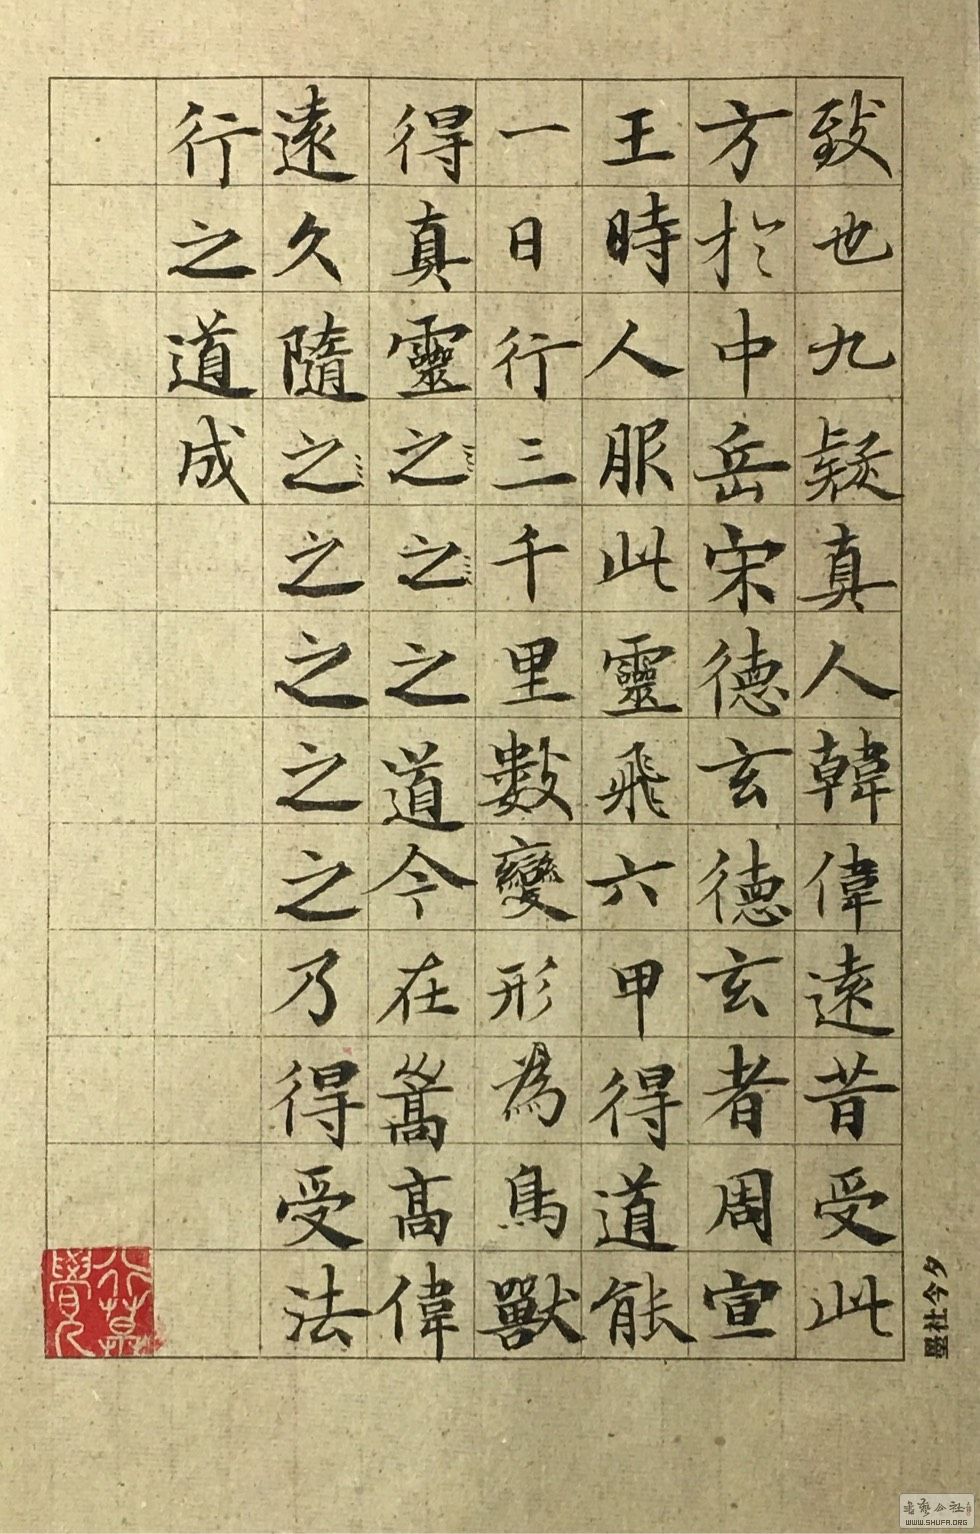 致也九疑真人韓偉遠昔受此
方於中岳宋德玄德玄者周宣
王時人服此靈飛六甲得道能
一日行三千里數變形為鳥獸
得真靈之之之今道今在嵩高偉
遠久隨之之之之之乃得受法
行之道成
墨社今夕
WWW.SHUFA.ORG